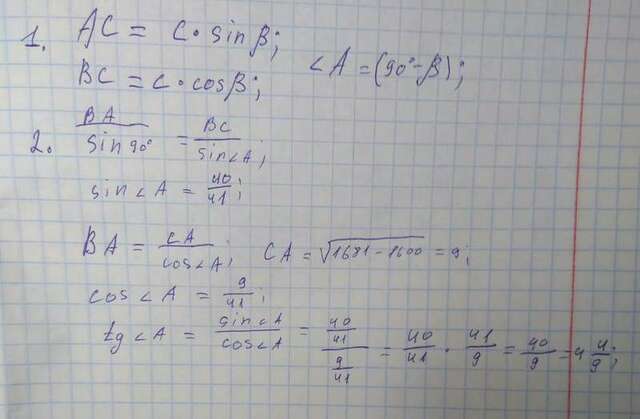 1. AC = c · sin β;
BC = c · cos β; ∠A = (90° - β);
2. BA/sin 90° = BC/sin∠A;
sin∠A = 40/41;
BA = CA/cos∠A; CA = √(1681 - 1600) = 9;
cos∠A = 9/41;
tg∠A = sin∠A/cos∠A = (40/41)/(9/41) = 40/41 · 41/9 = 40/9 = 4 4/9;